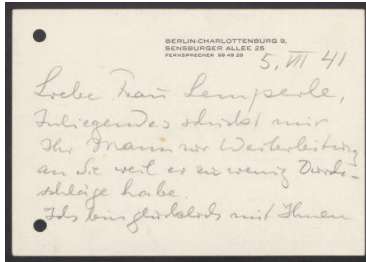 BERLIN-CHARLOTTENBURG 9,
SENSBURGER ALLEE 25
FERNSPRECHER 99 49 25
5. VII 41
Liebe Frau Lemperle,
Inliegendes schickt mir
Ihr Mann zur Weiterleitung
an Sie weil er zu wenig Durch-
schläge habe.
Ich bin glücklich mit Ihnen